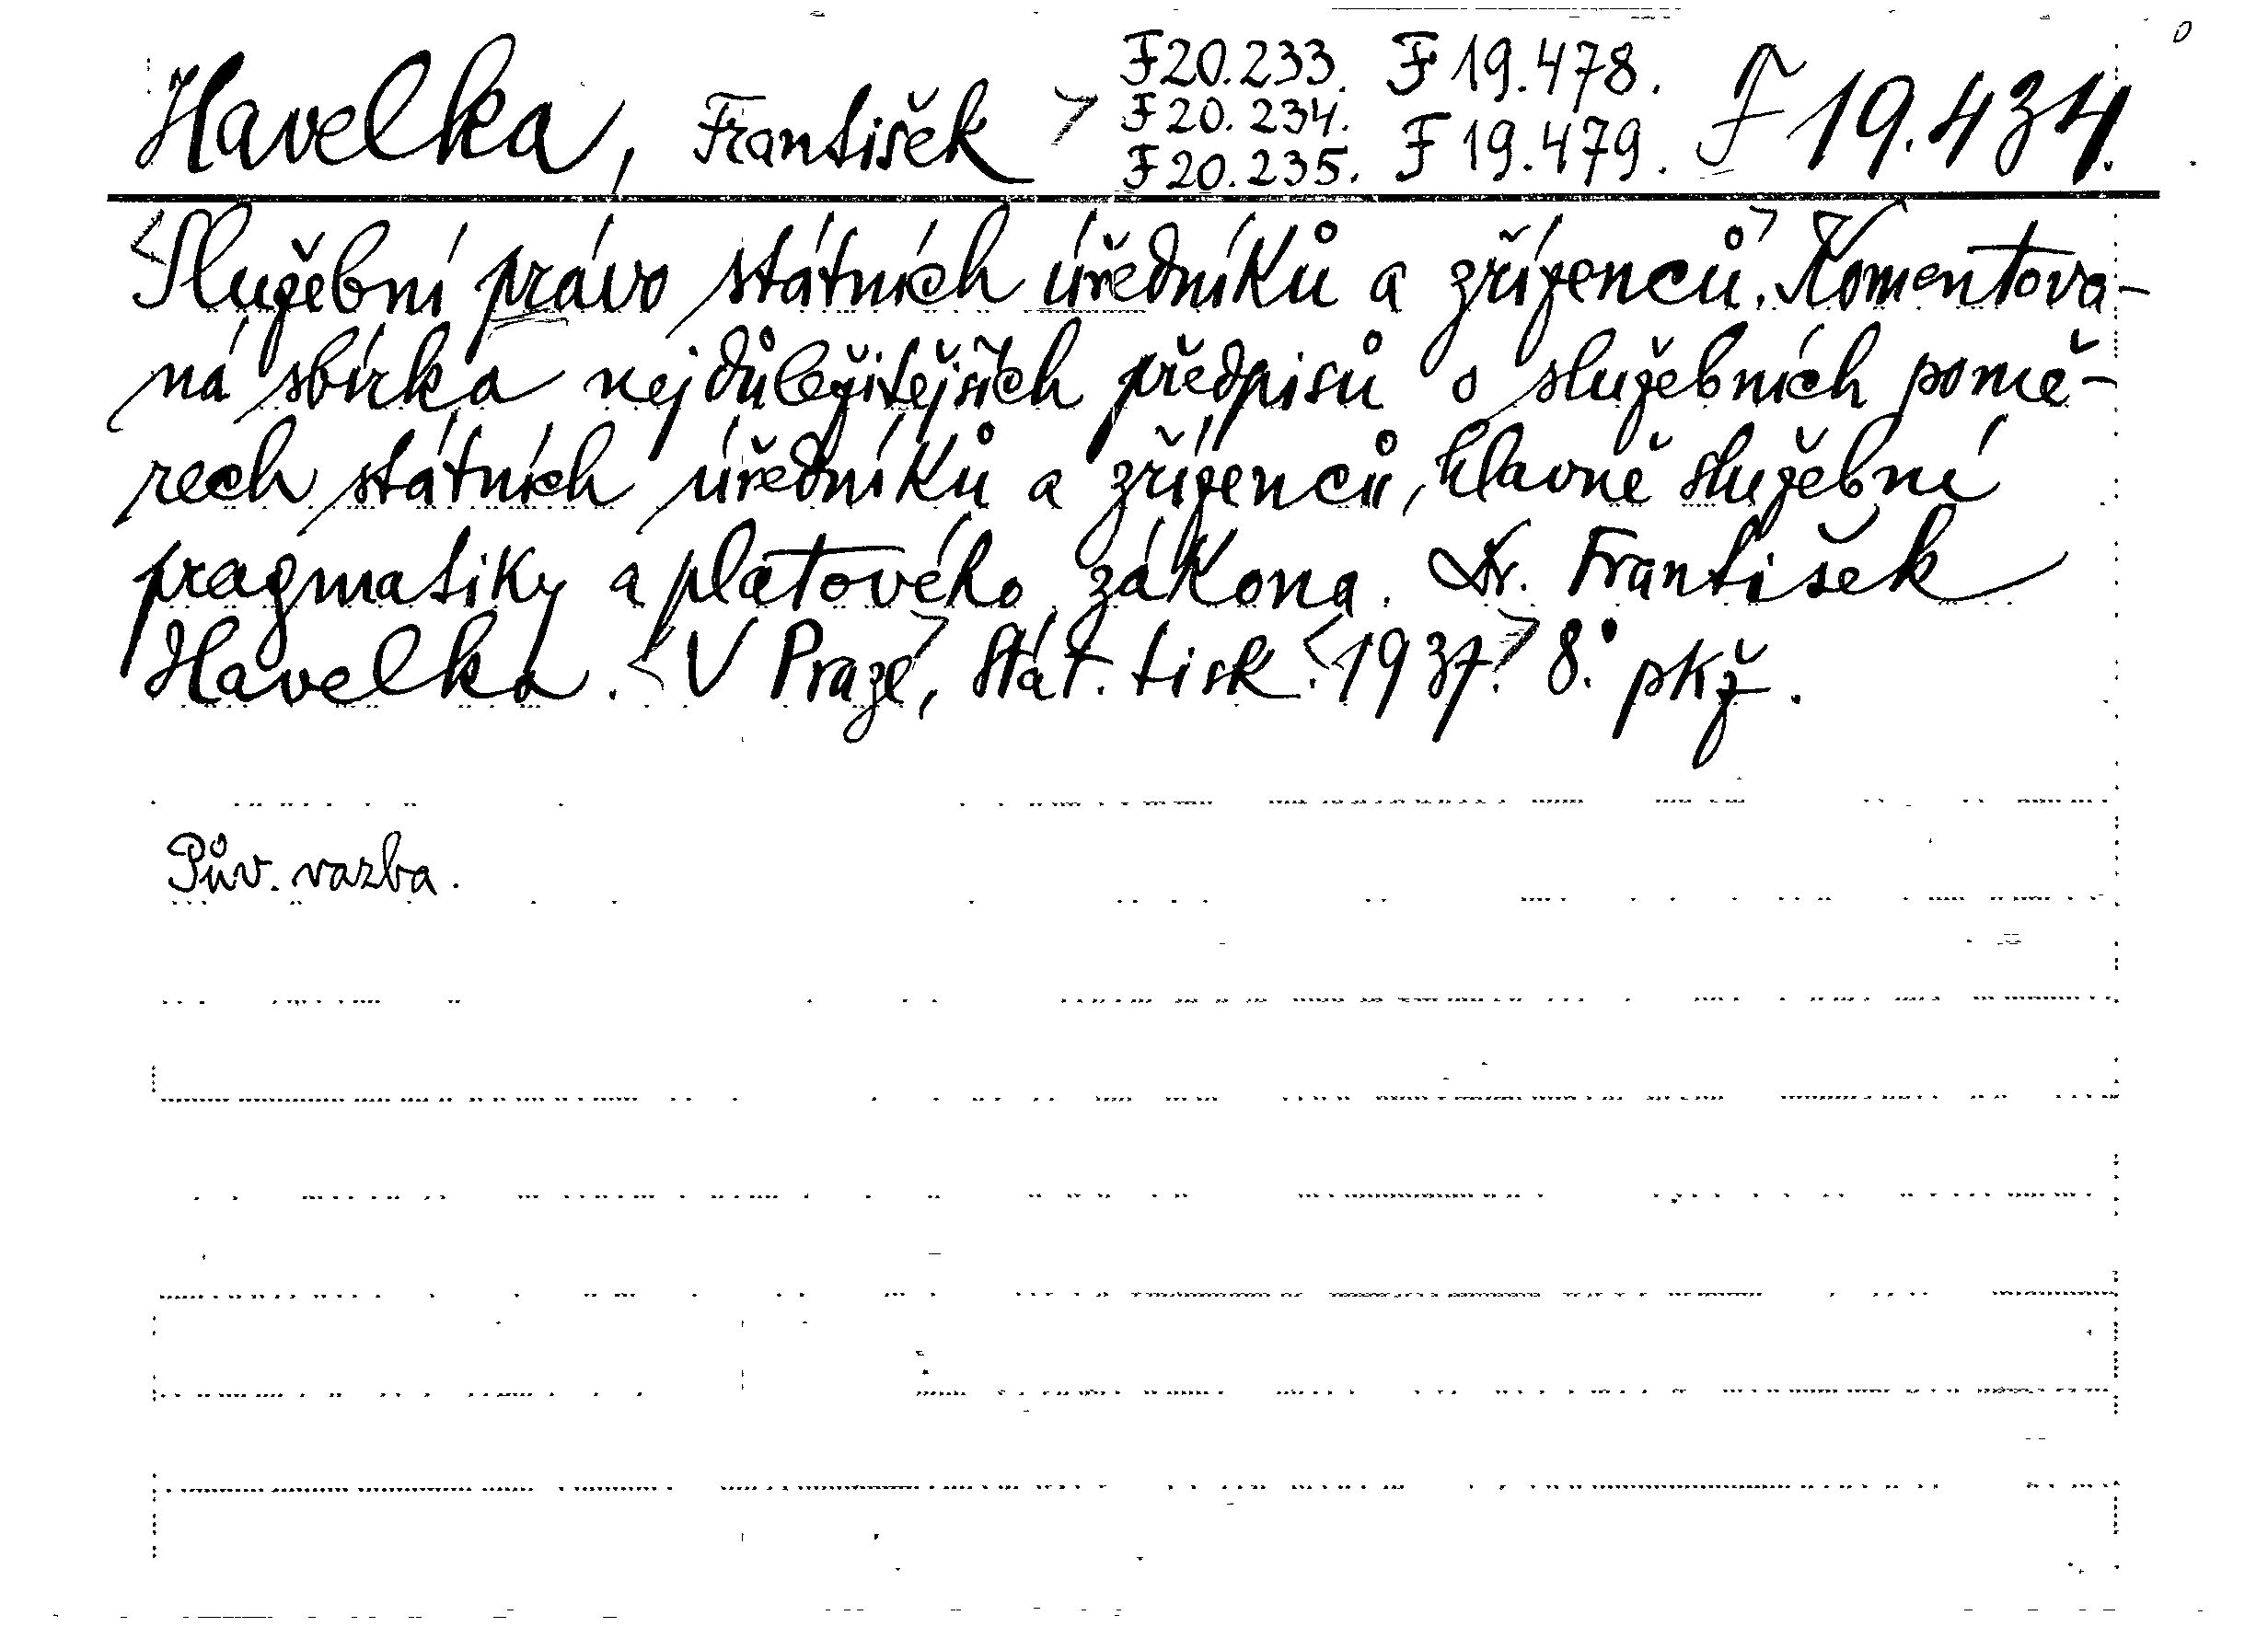 Havelka, František > F 20.233. F 19.478. F 19.434.
F 20.234. F 19.479.
F 20.235.
<Služební právo státních úředníků a zřízenců.> Komentova-
ná sbírka nejdůležitějších předpisů o služebních pomě-
rech státních úředníků a zřízenců, hlavně služební
pragmatiky a platového zákona. Dr. František
Havelka. <V Praze>, Stát. tisk. <1937.> 8.° pkž.
Pův. vazba.